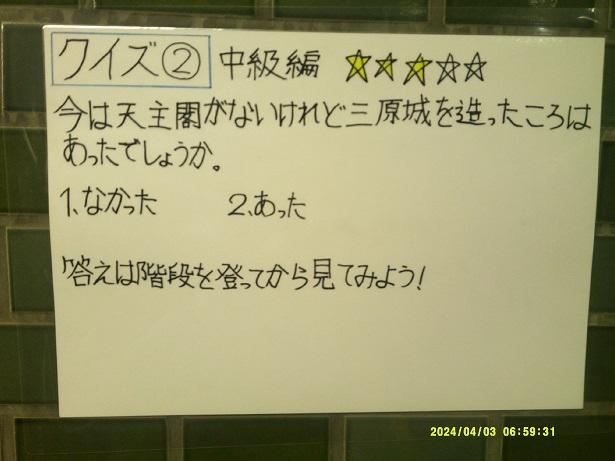 クイズ② 中級編 ★★★☆☆
今は天主閣がないけれど三原城を造ったころは
あったでしょうか。
1、なかった 2、あった
答えは階段を登ってから見てみよう!
2024/04/03 06:59:31